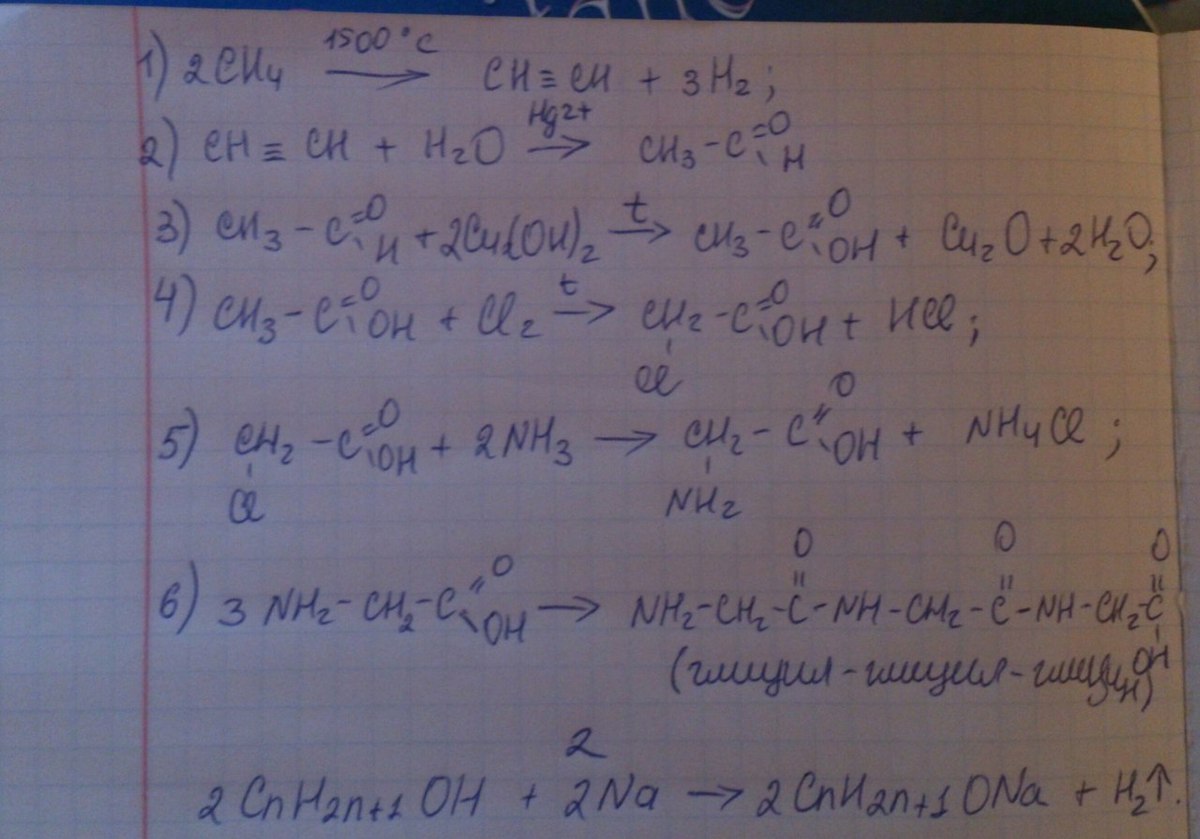 1) 2CH₄ 1500°C → CH≡CH + 3H₂;
2) CH≡CH + H₂O Hg²⁺ → CH₃-C=O H
3) CH₃-C=O H + 2Cu(OH)₂ t → CH₃-C=O OH + Cu₂O + 2H₂O;
4) CH₃-C=O OH + Cl₂ t → CH₂-C=O OH + HCl;
Cl
5) CH₂-C=O OH + 2NH₃ → CH₂-C=O OH + NH₄Cl;
Cl NH₂
O O O
6) 3 NH₂-CH₂-C=O OH → NH₂-CH₂-C-NH-CH₂-C-NH-CH₂-C
OH
(глицил-глицил-глицин)
2
2CnH2n+1OH + 2Na → 2CnH2n+1ONa + H₂↑.